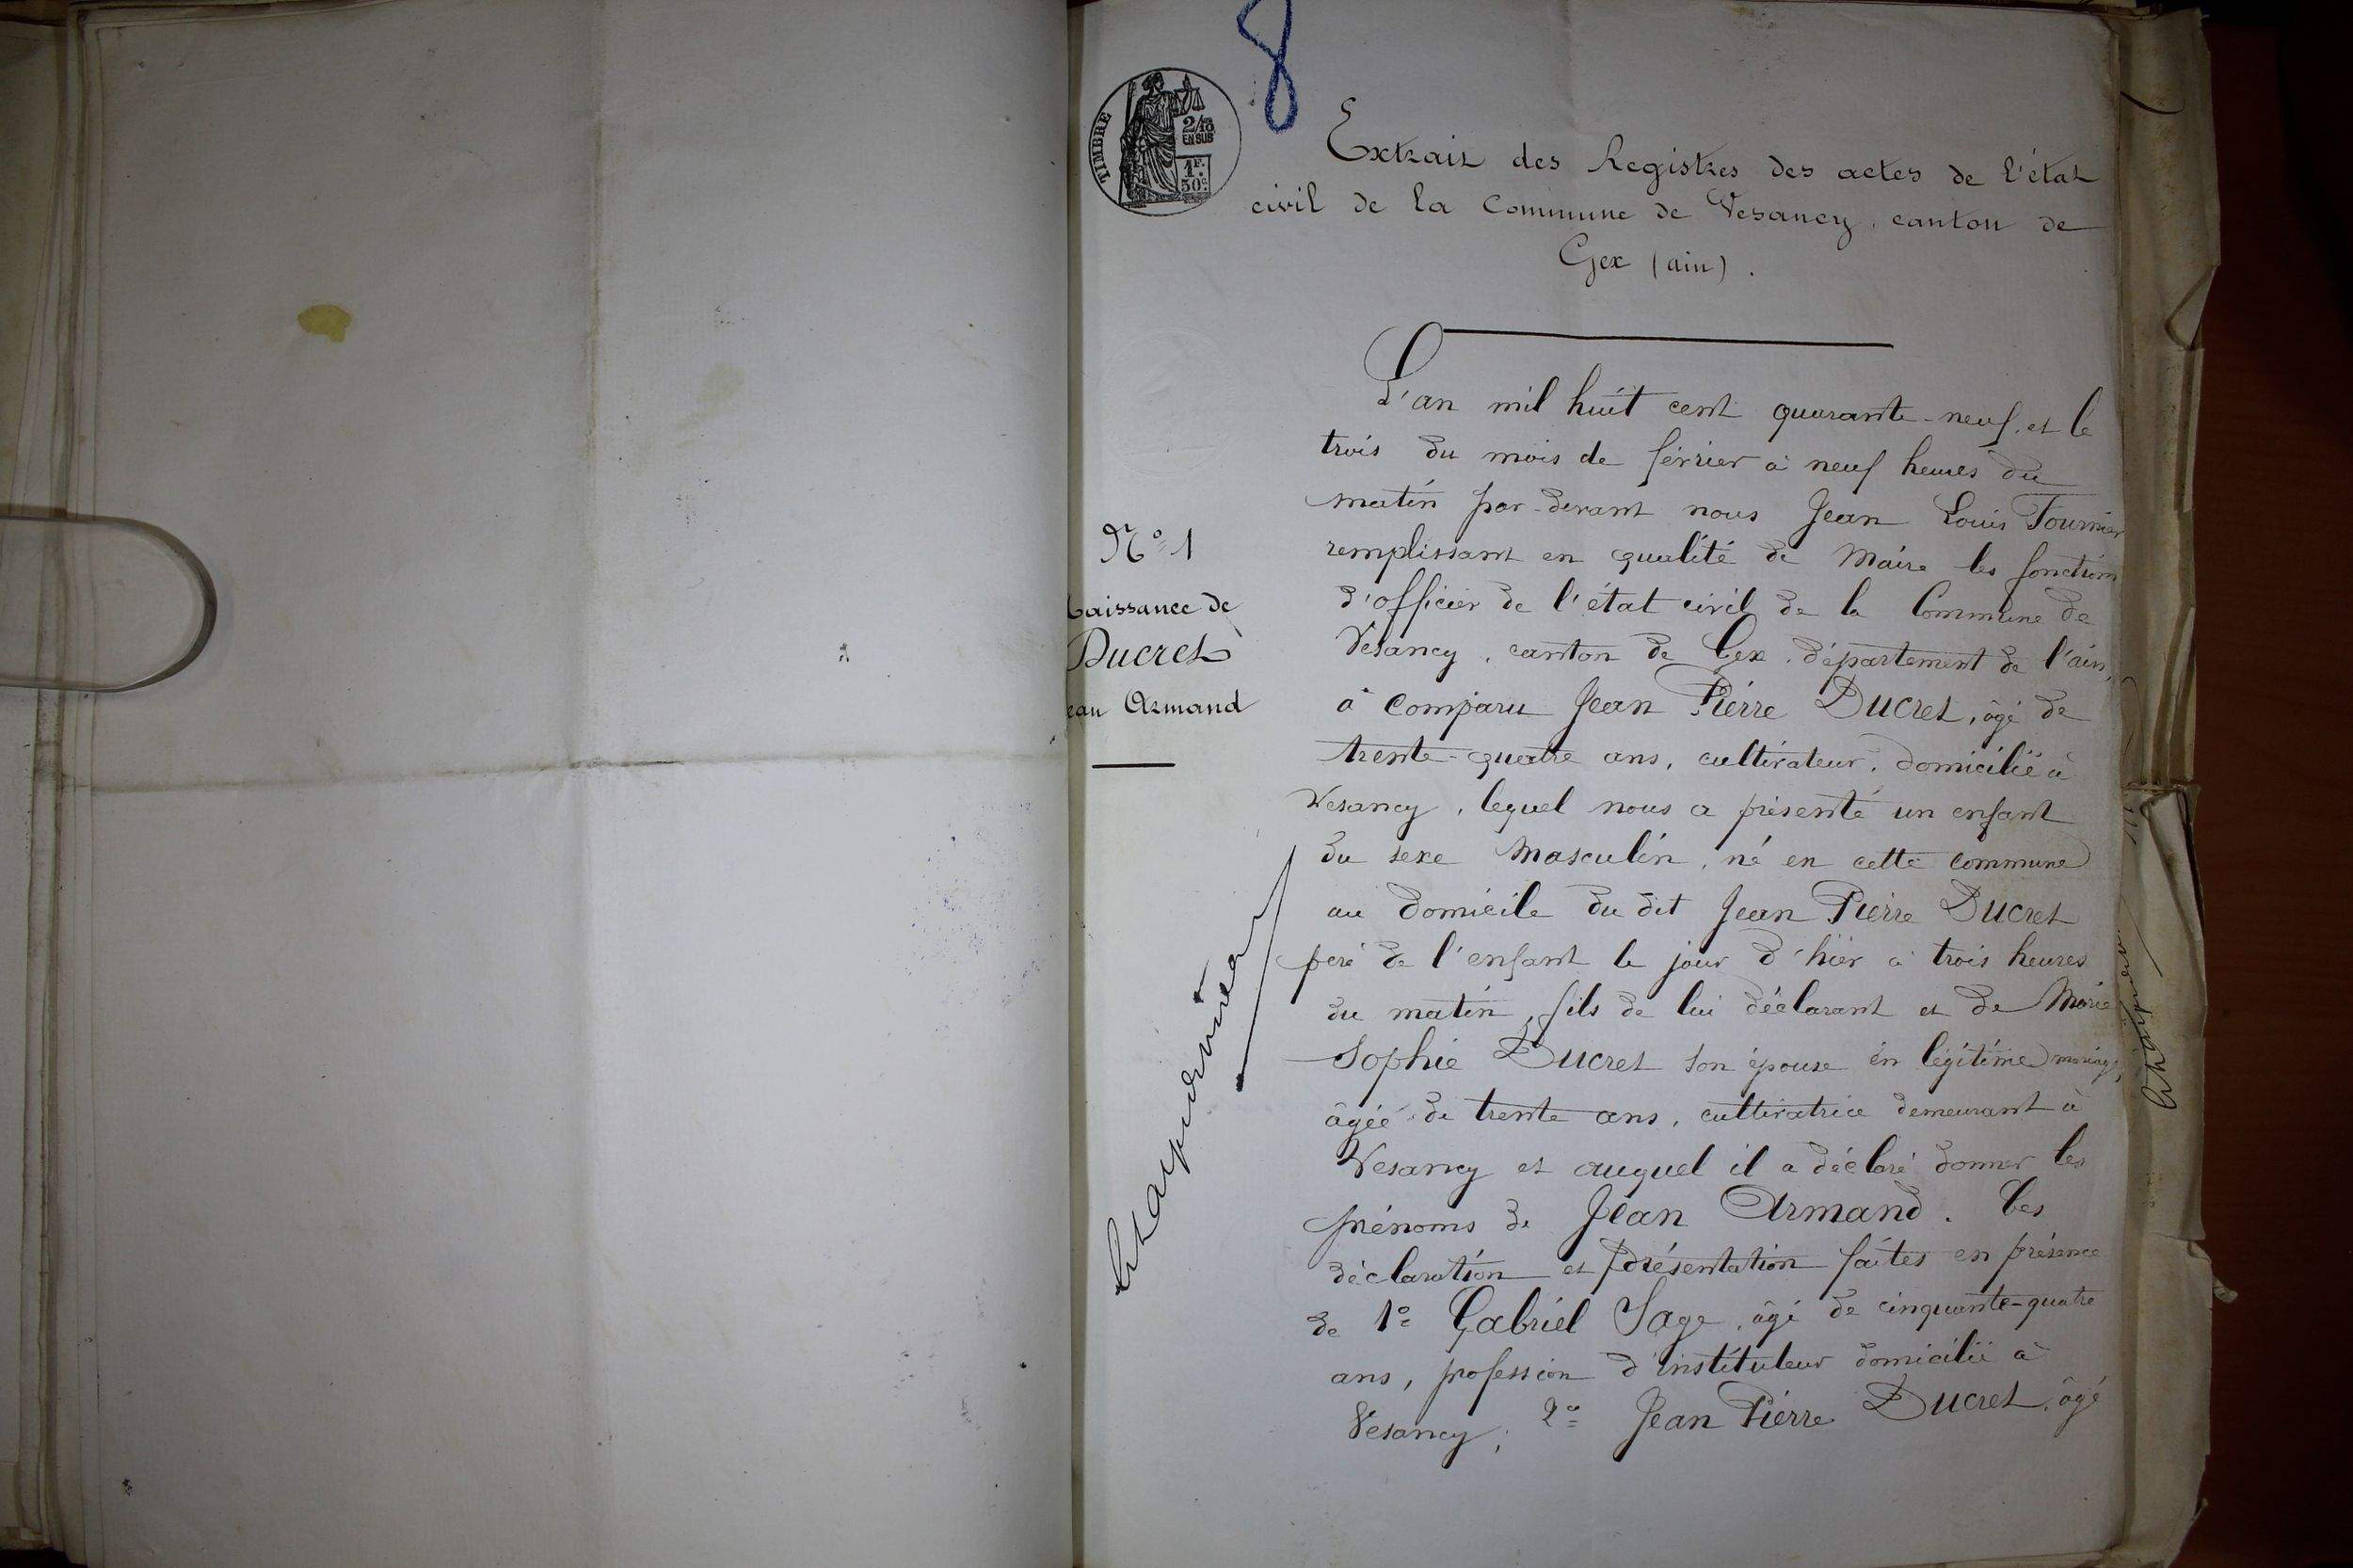 8
TIMBRE
2/10
EN SUS
1F.
50c.
Extrait des Registres des actes de l'état
civil de la Commune de Vesancy, canton de
Gex (ain).
L'an mil huit cent quarante-neuf, et le
trois du mois de février à neuf heures du
matin par-devant nous Jean Louis Fournier
remplissant en qualité de Maire les fonctions
d'officier de l'état civil de la Commune de
Vesancy, canton de Gex, département de l'ain,
à comparu Jean Pierre Ducret, âgé de
trente-quatre ans, cultivateur, domicilié à
Vesancy, lequel nous a présenté un enfant
du sexe Masculin, né en cette commune
au domicile du dit Jean Pierre Ducret
père de l'enfant le jour d'hier à trois heures
du matin, fils de lui déclarant et de Marie
Sophie Ducret son épouse en légitime mariage,
âgée de trente ans, cultivatrice demeurant à
Vesancy et auquel il a déclaré donner les
prénoms de Jean Armand. Ces
déclaration et présentation faites en présence
de 1° Gabriel Sage, âgé de cinquante-quatre
ans, profession d'instituteur domicilié à
Vesancy; 2° Jean Pierre Ducret, âgé
N° 1
aissance de
Ducret
ean Armand